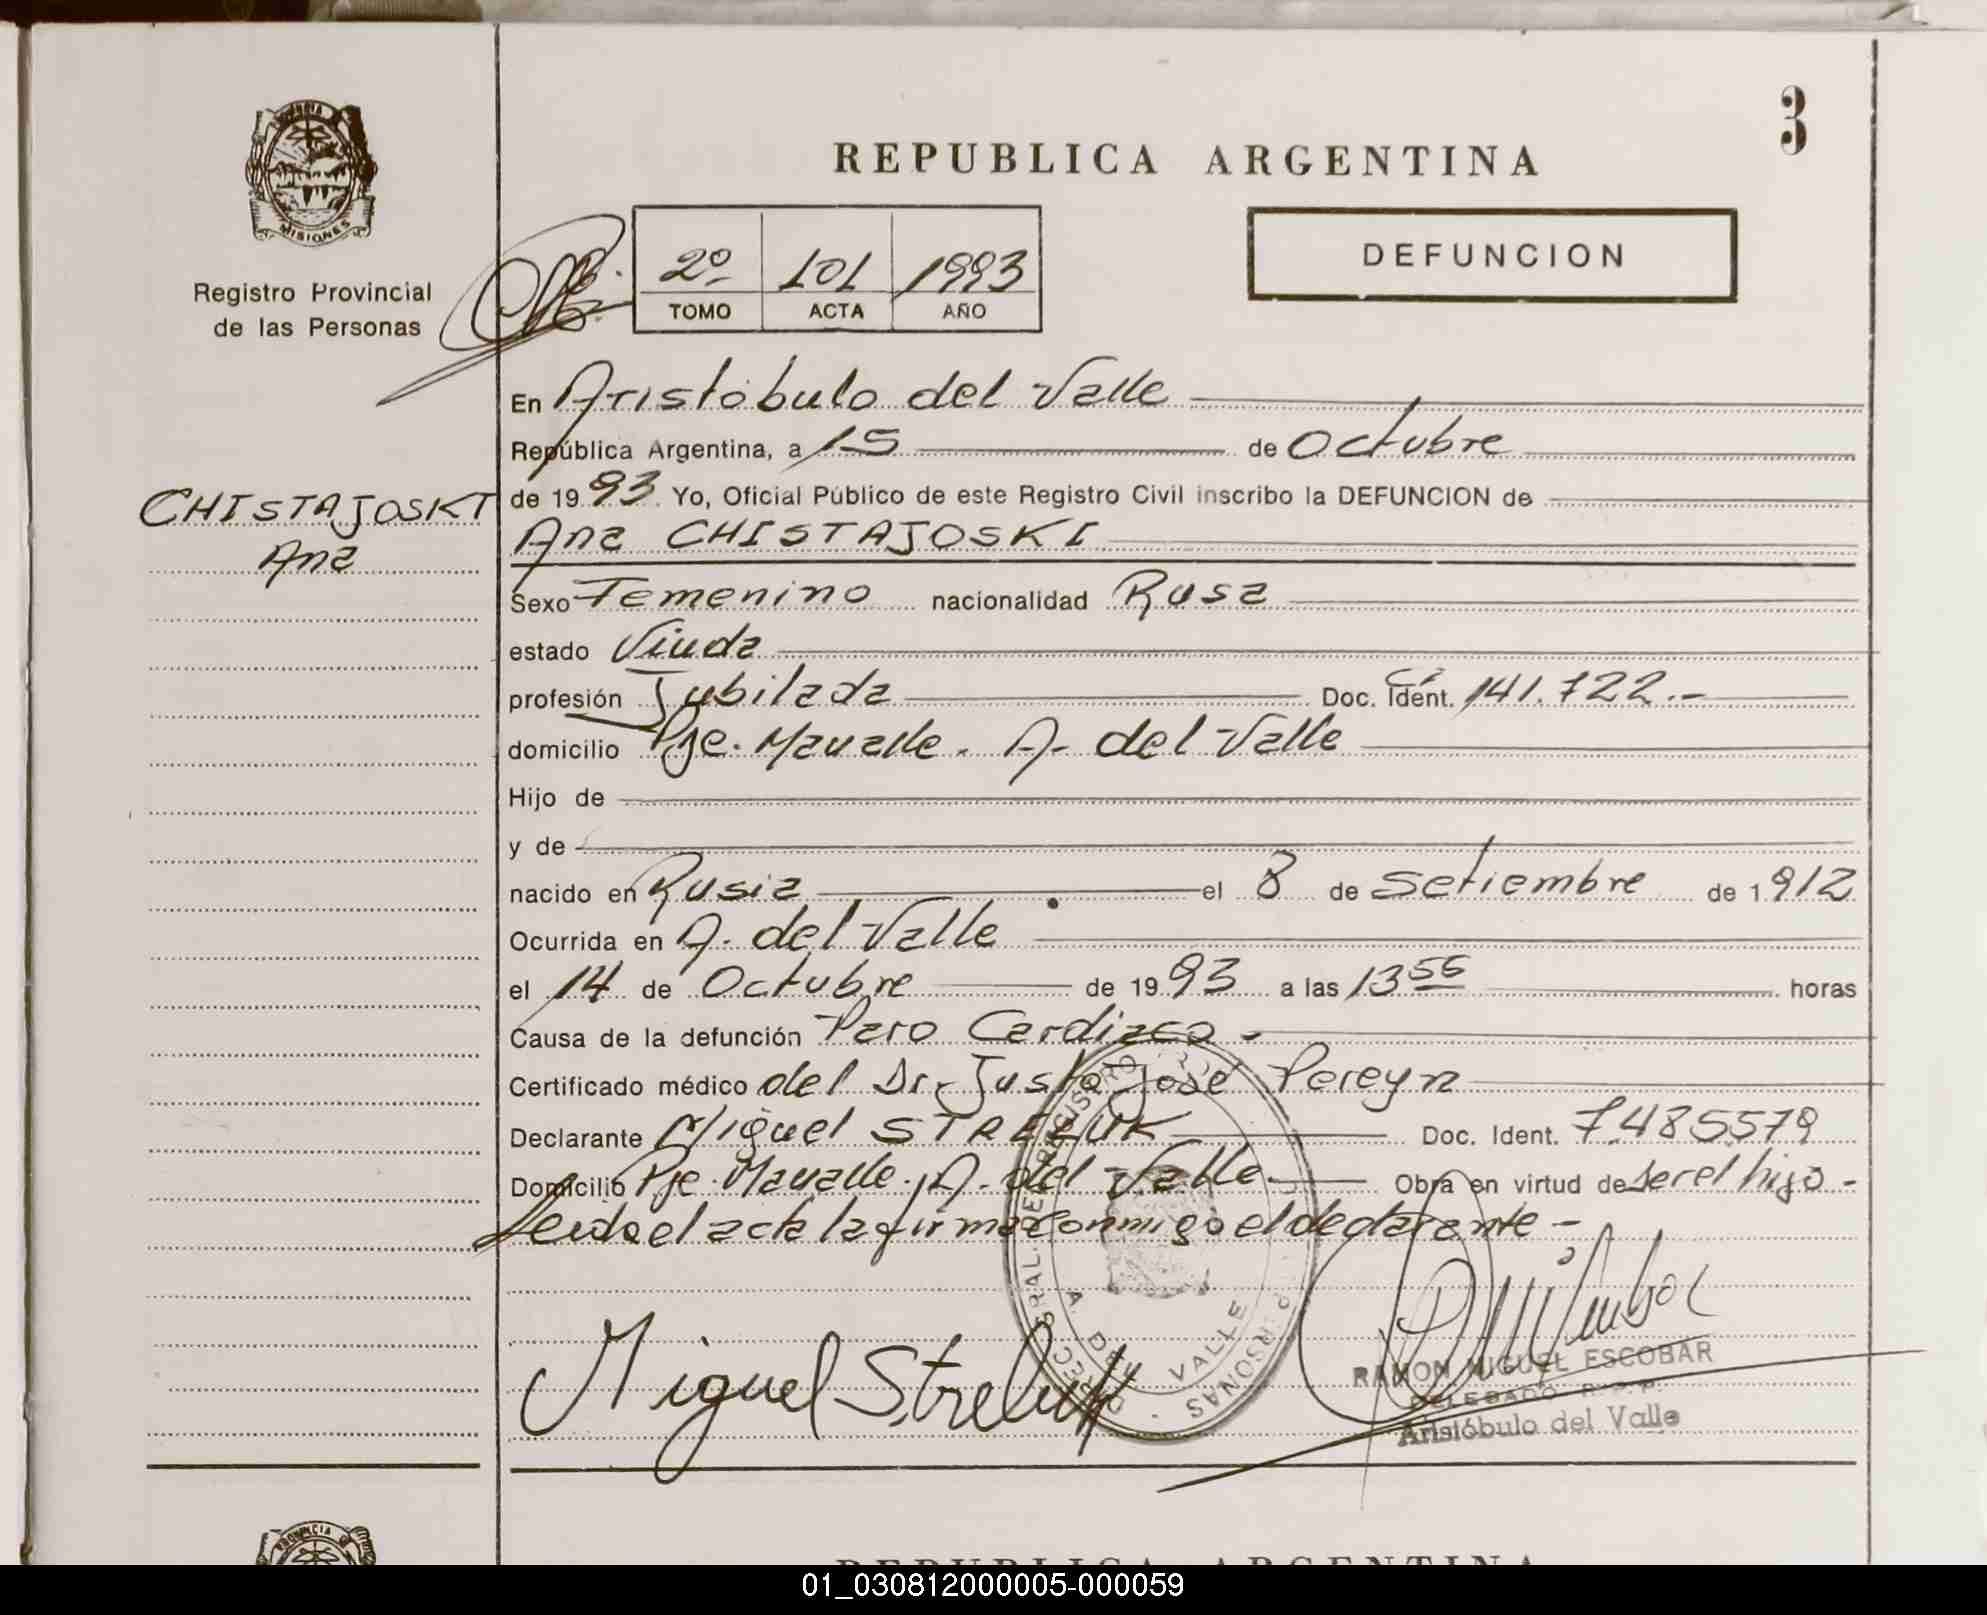 3
PROVINCIA
MISIONES
REPUBLICA ARGENTINA
DEFUNCION
Registro Provincial
de las Personas
2º 101 1993
TOMO ACTA AÑO
En Aristóbulo del Valle
República Argentina, a 15 de Octubre
CHISTAJOSKI
Ana
de 1993. Yo, Oficial Público de este Registro Civil inscribo la DEFUNCION de
Ana CHISTAJOSKI
Sexo Femenino nacionalidad Rusa
estado Viuda
profesión Jubilada Doc. Ident. CI 141.722.-
domicilio Pje. Mavalle. A. del Valle
Hijo de
y de
nacido en Rusia el 8 de Setiembre de 1912
Ocurrida en A. del Valle
el 14 de Octubre de 1993 a las 13 horas
Causa de la defunción Paro Cardiaco -
Certificado médico del Dr. Justo José Pereyra
Declarante Miguel STRELUK Doc. Ident. 7.485579
Domicilio Pje. Mavalle. A. del Valle Obra en virtud de ser el hijo -
Leida el acta la firma conmigo el declarante -
Miguel Streluk
A. DEL VALLE
RAMON MIGUEL ESCOBAR
DELEGADO R.P.P.
Aristóbulo del Valle
PROVINCIA
REPUBLICA ARGENTINA
01_030812000005-000059